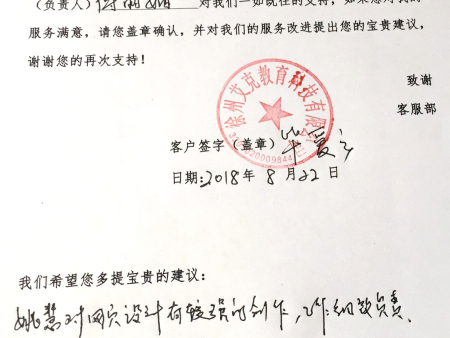 （负责人） 对我们一如既往的支持，如果您对我们的
服务满意，请您盖章确认，并对我们的服务改进提出您的宝贵建议，
谢谢您的再次支持！
致谢
客服部
徐州艾克教育科技有限公司
客户签字（盖章）
日期：2018年 8 月 22 日
我们希望您多提宝贵的建议：
姚慧对网页设计有较强的创作，工作细致负责。